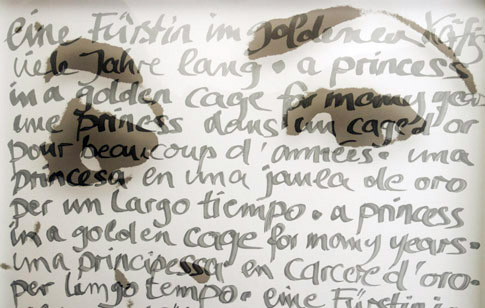 eine Fürstin im goldenen Käfig
viele Jahre lang. a princess
in a golden cage for many years
une princess dans un cage d'or
pour beaucoup d'années. una
princesa en una jaula de oro
per un largo tiempo. a princess
in a golden cage for many years.
una principessa en carcere d'oro.
per lungo tempo. eine Fürstin i